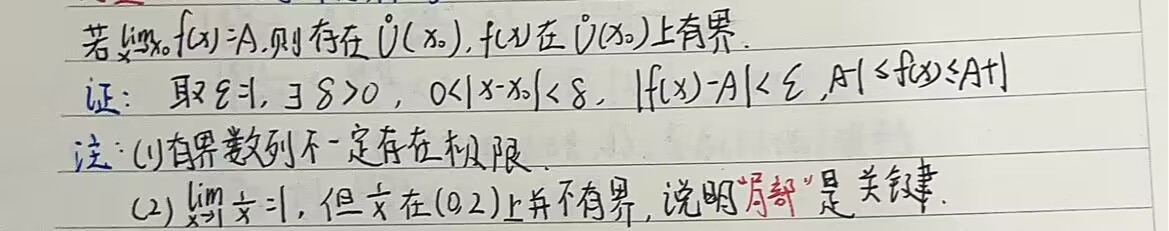 若lim x→x₀ f(x)=A,则存在Ů(x₀), f(x)在Ů(x₀)上有界.
证: 取ε=1, ∃δ>0, 0<|x-x₀|<δ, |f(x)-A|<ε, A-1≤f(x)≤A+1
注:(1)有界数列不一定存在极限.
(2) lim x→1 1/x=1, 但1/x在(0,2)上并不有界,说明"局部"是关键.